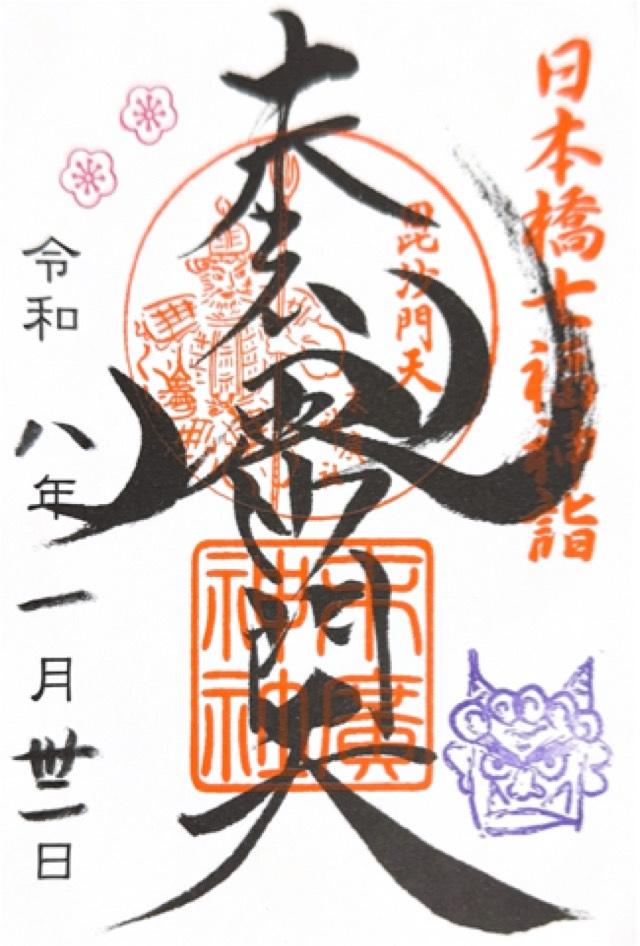 日本橋七福神詣
毘沙門天
毘沙門天
末廣
神社
令和八年一月卅一日